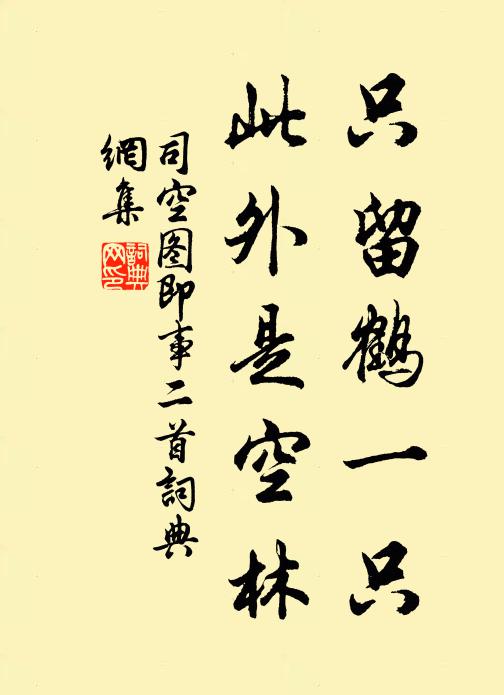 只留鶴一只
此外是空林
司空图即事二首詞典
網集
詞典
网印